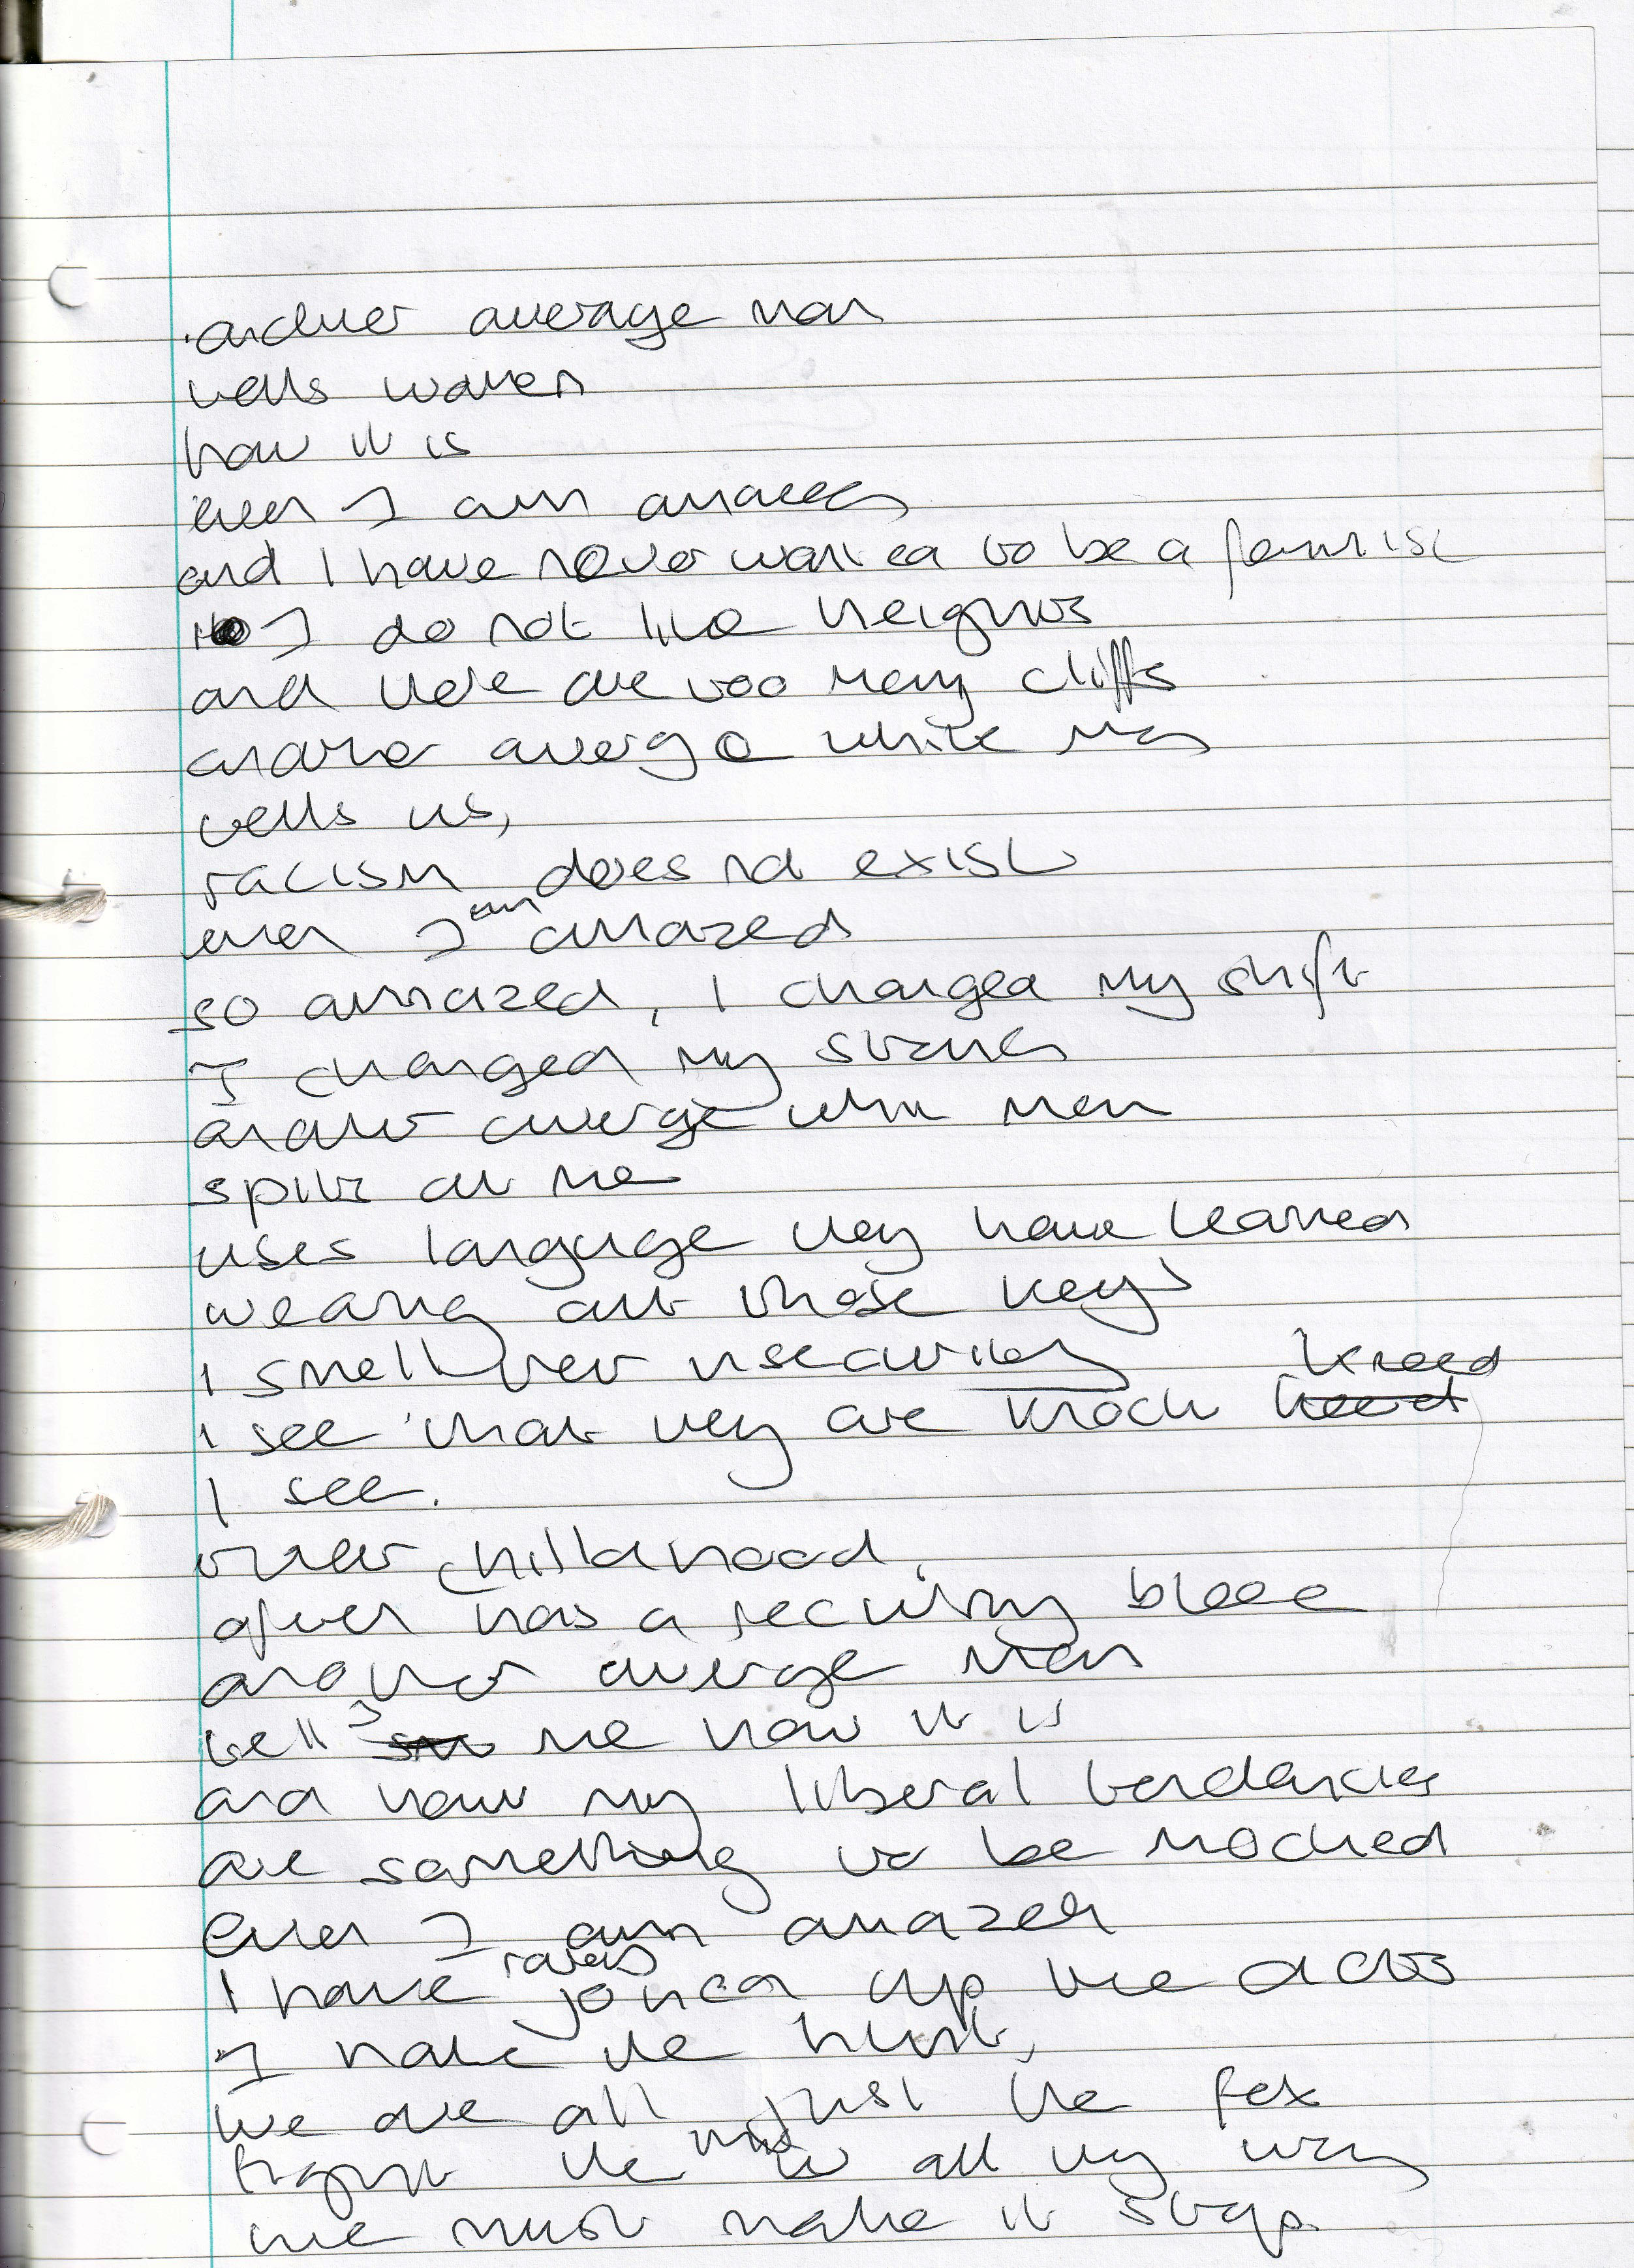 another average man
tells women
how it is
even I am amazed
and I have never wanted to be a feminist
I do not like heights
and there are too many cliffs
another average white man
tells us,
racism does not exist
even I am amazed
so amazed, I changed my shift
I changed my
another average white man
spits at me
uses language they have learned
wearing out those keys
I smell their insecurities
I see that they are knock kneed
I see.
their childhood,
often has a security
another average man
tells me how it is
and how my liberal tendencies
are something to be mocked
even I am amazed
I have joined up the dots
I hate the hunt,
we are all just the fox
the all the way
we must make it stop.